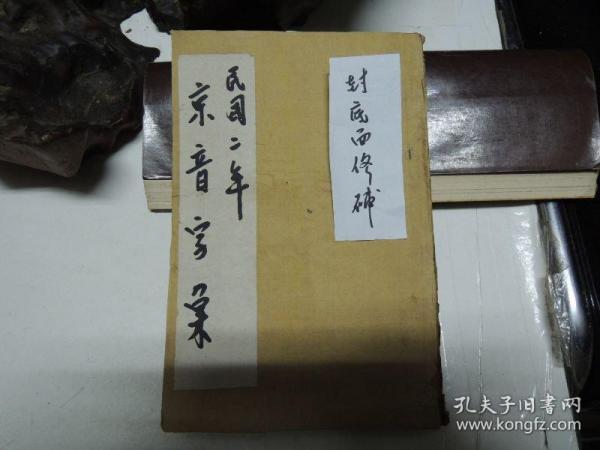 民国二年
京音字彙
封底面修補
孔夫子旧书网
www.kongfz.com